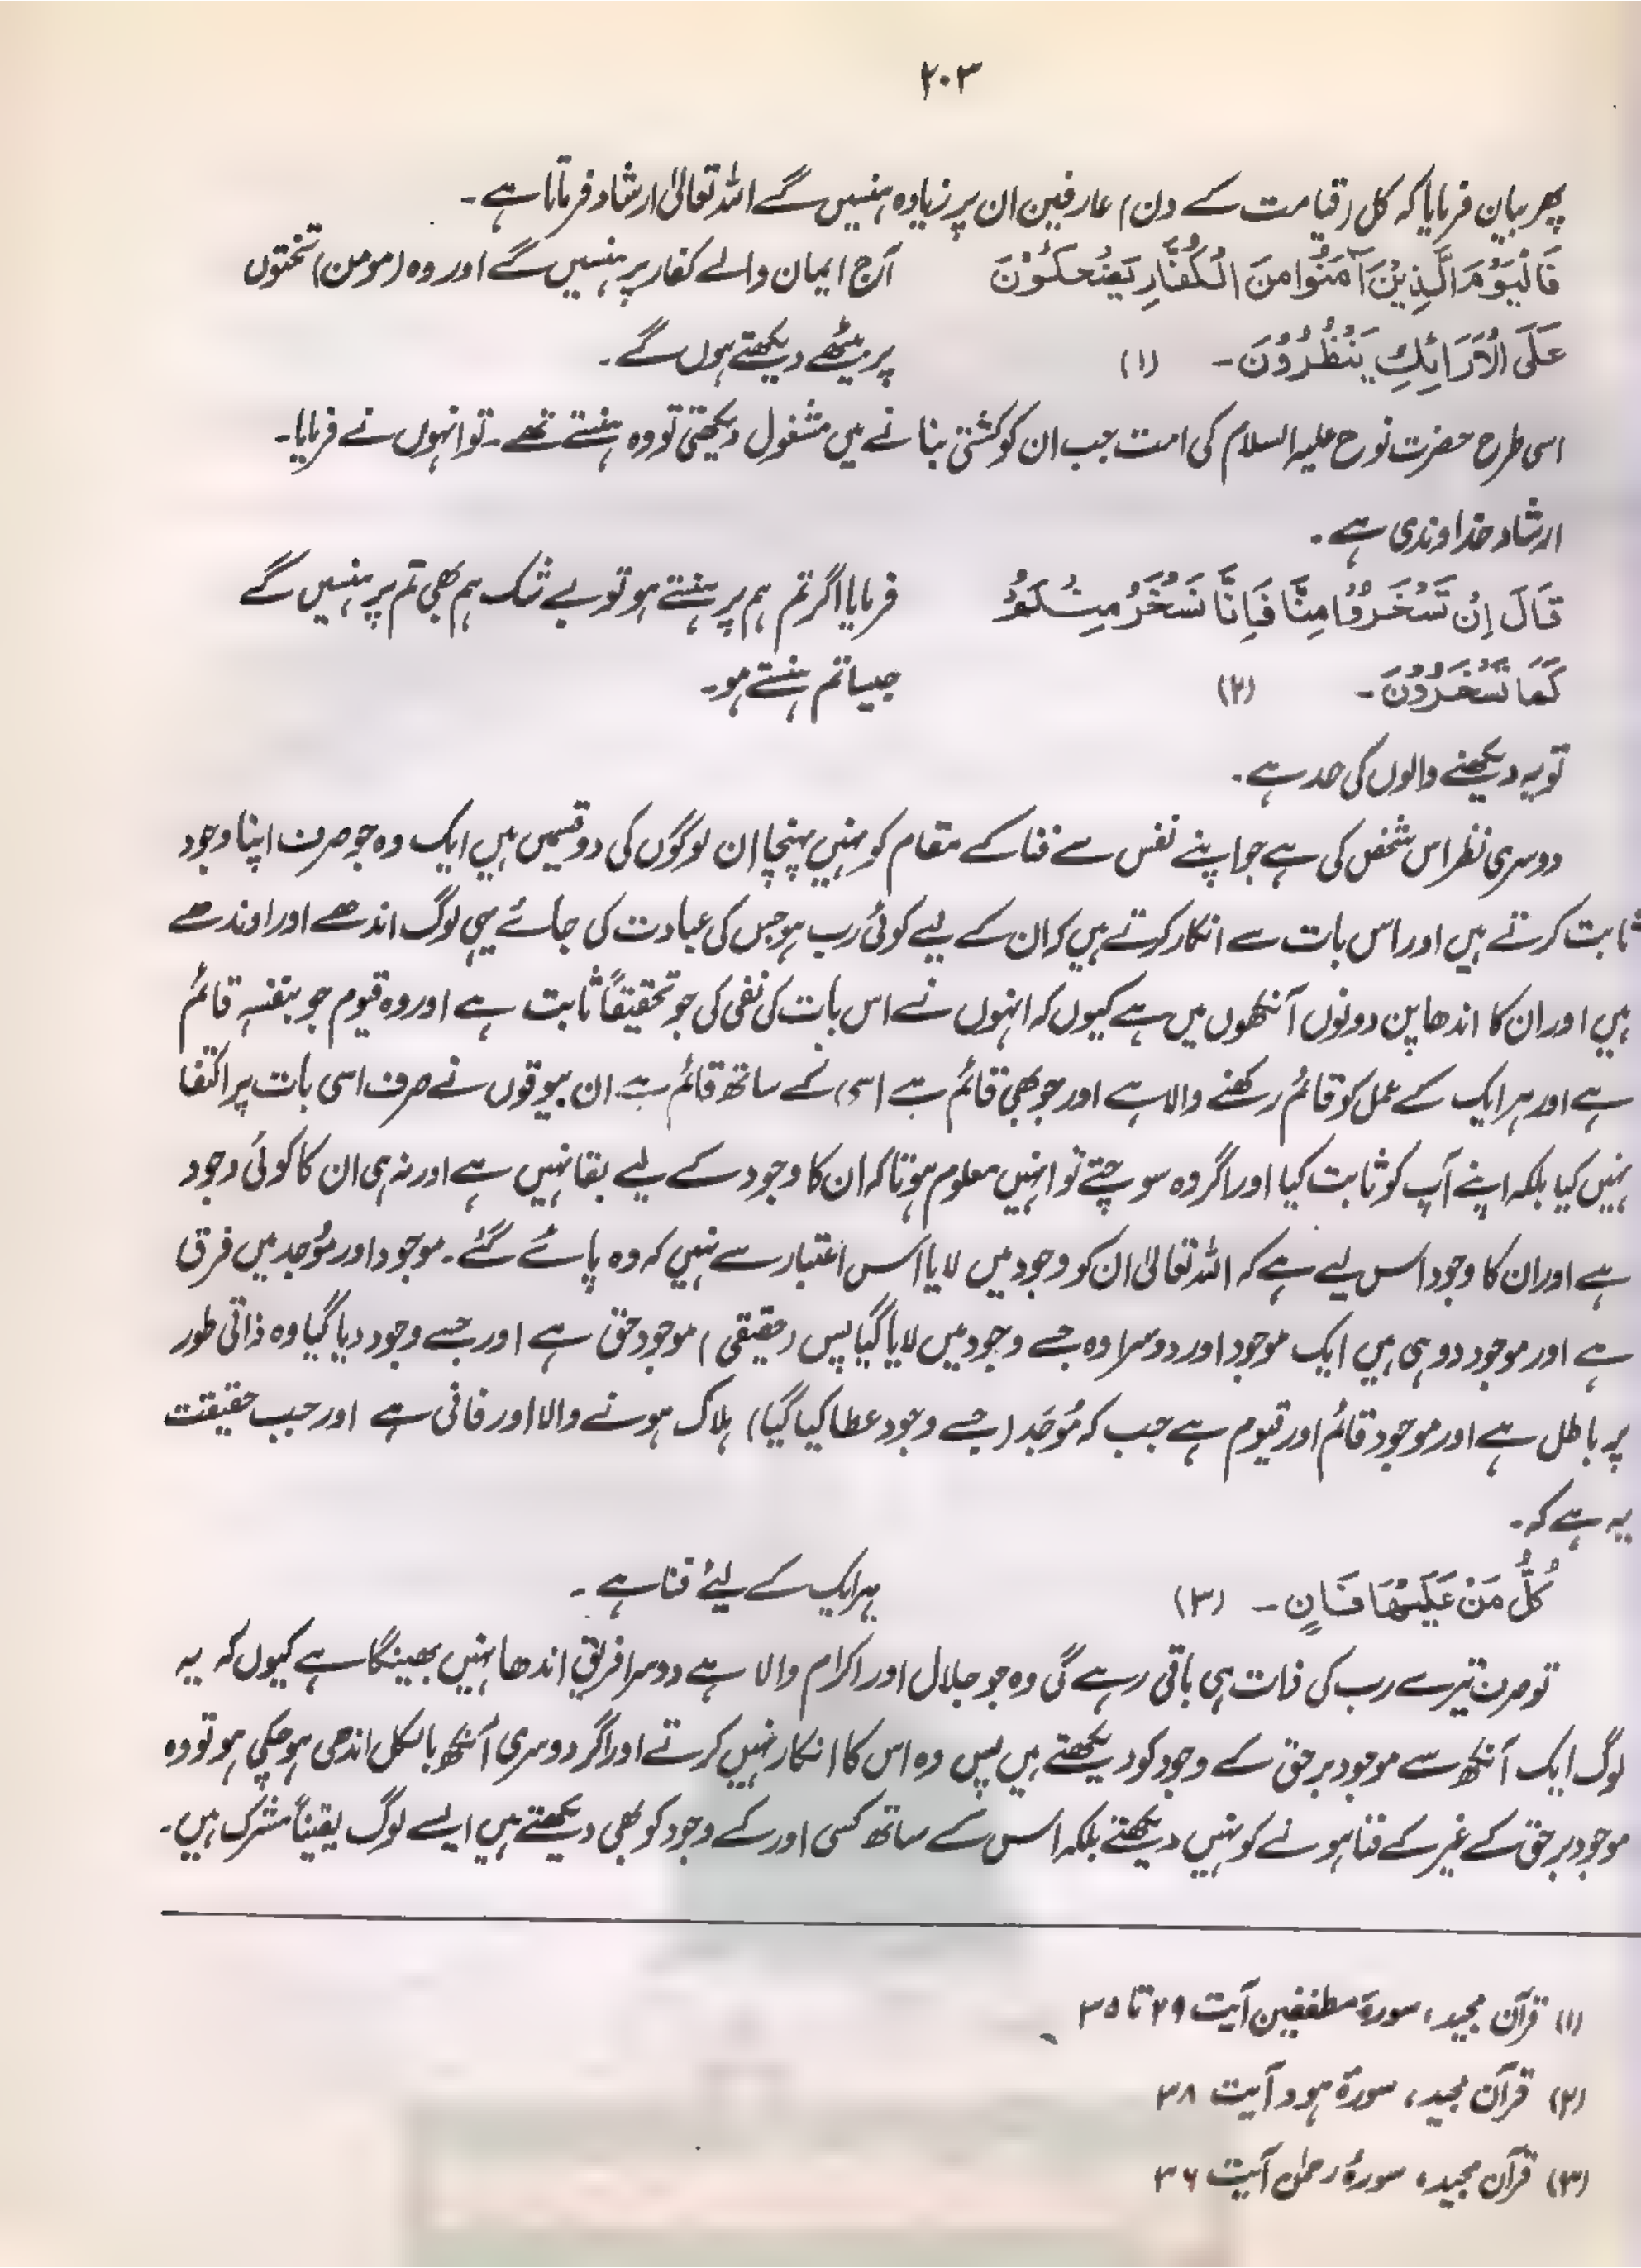 ۲۰۳
پھر بیان فرمایا کہ کل (قیامت کے دن) عارفین ان پر زیادہ ہنسیں گے اللہ تعالیٰ ارشاد فرماتا ہے۔
فَالْيَوْمَ الَّذِيْنَ آمَنُوْا مِنَ الْكُفَّارِ يَضْحَكُوْنَ آج ایمان والے کفار پر ہنسیں گے اور وہ (مومن) تختوں
عَلَى الْاَرَائِكِ يَنْظُرُوْنَ۔ (۱) پر بیٹھے دیکھتے ہوں گے۔
اسی طرح حضرت نوح علیہ السلام کی امت جب ان کو کشتی بنانے میں مشغول دیکھتی تو وہ ہنستے تھے۔ تو انہوں نے فرمایا۔
ارشاد خداوندی ہے۔
قَالَ اِنْ تَسْخَرُوْا مِنَّا فَاِنَّا نَسْخَرُ مِنْكُمْ فرمایا اگر تم ہم پر ہنستے ہو تو بے شک ہم بھی تم پر ہنسیں گے
كَمَا تَسْخَرُوْنَ۔ (۲) جیسا تم ہنستے ہو۔
تو یہ دیکھنے والوں کی حد ہے۔
دوسری نظر اس شخص کی ہے جو اپنے نفس سے فنا کے مقام کو نہیں پہنچا ان لوگوں کی دو قسمیں ہیں ایک وہ جو صرف اپنا وجود
ثابت کرتے ہیں اور اس بات سے انکار کرتے ہیں کہ ان کے لیے کوئی رب ہو جس کی عبادت کی جائے یہی لوگ اندھے اور اوندھے
ہیں اور ان کا اندھا پن دونوں آنکھوں میں ہے کیوں کہ انہوں نے اس بات کی نفی کی جو تحقیقاً ثابت ہے اور وہ قیوم جو بنفسہٖ قائم
ہے اور ہر ایک کے عمل کو قائم رکھنے والا ہے اور جو بھی قائم ہے اسی کے ساتھ قائم ہے۔ ان بیوقوں نے صرف اسی بات پر اکتفا
نہیں کیا بلکہ اپنے آپ کو ثابت کیا اور اگر وہ سوچتے تو انہیں معلوم ہوتا کہ ان کا وجود کے لیے بقا نہیں ہے اور نہ ہی ان کا کوئی وجود
ہے اور ان کا وجود اس لیے ہے کہ اللہ تعالیٰ ان کو وجود میں لایا اس اعتبار سے نہیں کہ وہ پائے گئے۔ موجود اور مُوجد میں فرق
ہے اور موجود دو ہی ہیں ایک موجود اور دوسرا وہ جسے وجود میں لایا گیا پس (حقیقی) موجود حق ہے اور جسے وجود دیا گیا وہ ذاتی طور
پر باطل ہے اور موجود قائم اور قیوم ہے جب کہ مُوجَد (جسے وجود عطا کیا گیا) ہلاک ہونے والا اور فانی ہے اور جب حقیقت
یہ ہے کہ۔
كُلُّ مَنْ عَلَيْهَا فَانٍ۔ (۳) ہر ایک کے لیئے فنا ہے۔
تو صرف تیرے رب کی ذات ہی باقی رہے گی وہ جو جلال اور اکرام والا ہے دوسرا فریق اندھا نہیں بھینگا ہے کیوں کہ یہ
لوگ ایک آنکھ سے موجود برحق کے وجود کو دیکھتے ہیں پس وہ اس کا انکار نہیں کرتے اور اگر دوسری آنکھ بالکل اندھی ہو چکی ہو تو وہ
موجود برحق کے غیر کے فنا ہونے کو نہیں دیکھتے بلکہ اس کے ساتھ کسی اور کے وجود کو بھی دیکھتے ہیں ایسے لوگ یقیناً مشرک ہیں۔
(۱) قرآن مجید، سورۃ مطففین آیت ۲۹ تا ۳۵
(۲) قرآن مجید، سورۂ ہود آیت ۳۸
(۳) قرآن مجید، سورۂ رحمٰن آیت ۳۶